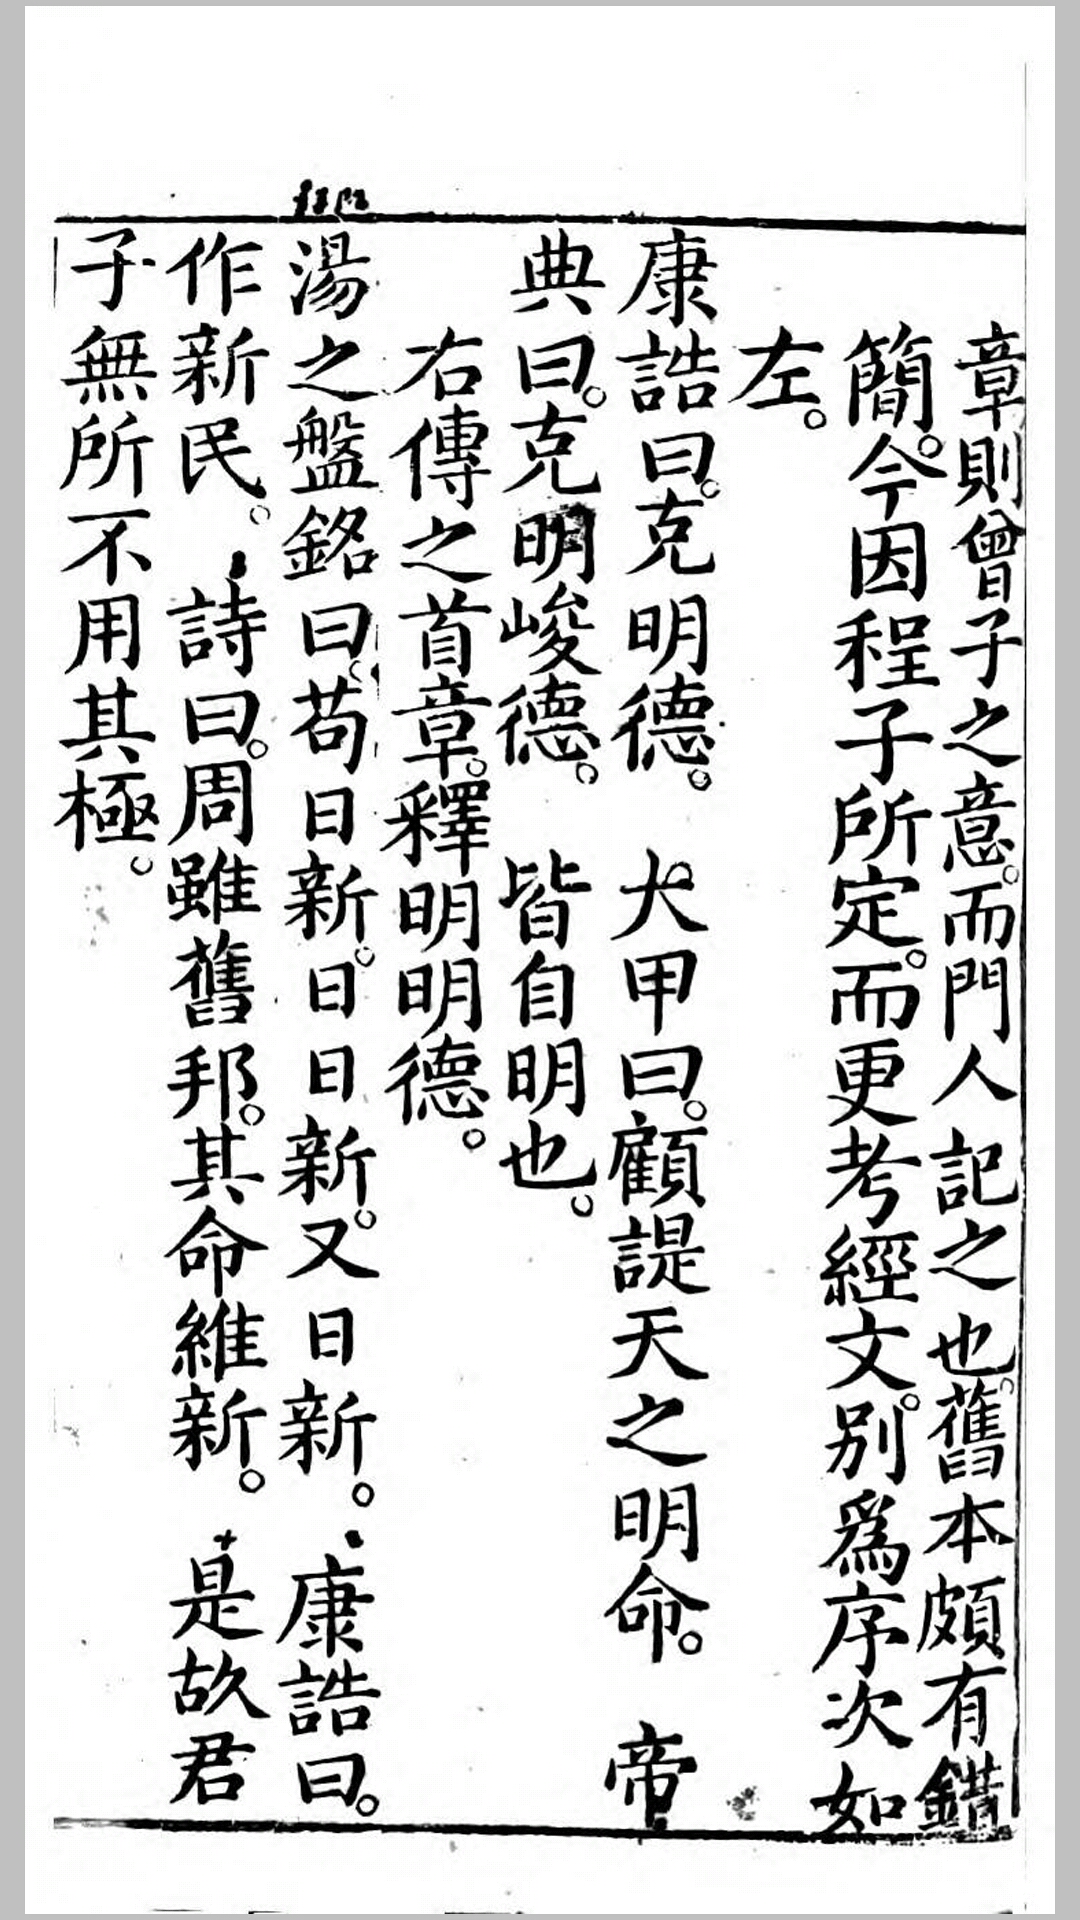 章則曾子之意。而門人記之也。舊本頗有錯
簡。今因程子所定。而更考經文。別爲序次如
左。
康誥曰。克明德。　大甲曰。顧諟天之明命。　帝
典曰。克明峻德。　皆自明也。
右傳之首章。釋明明德。
湯之盤銘曰。苟日新。日日新。又日新。　康誥曰。
作新民。　詩曰。周雖舊邦。其命維新。　是故君
子無所不用其極。